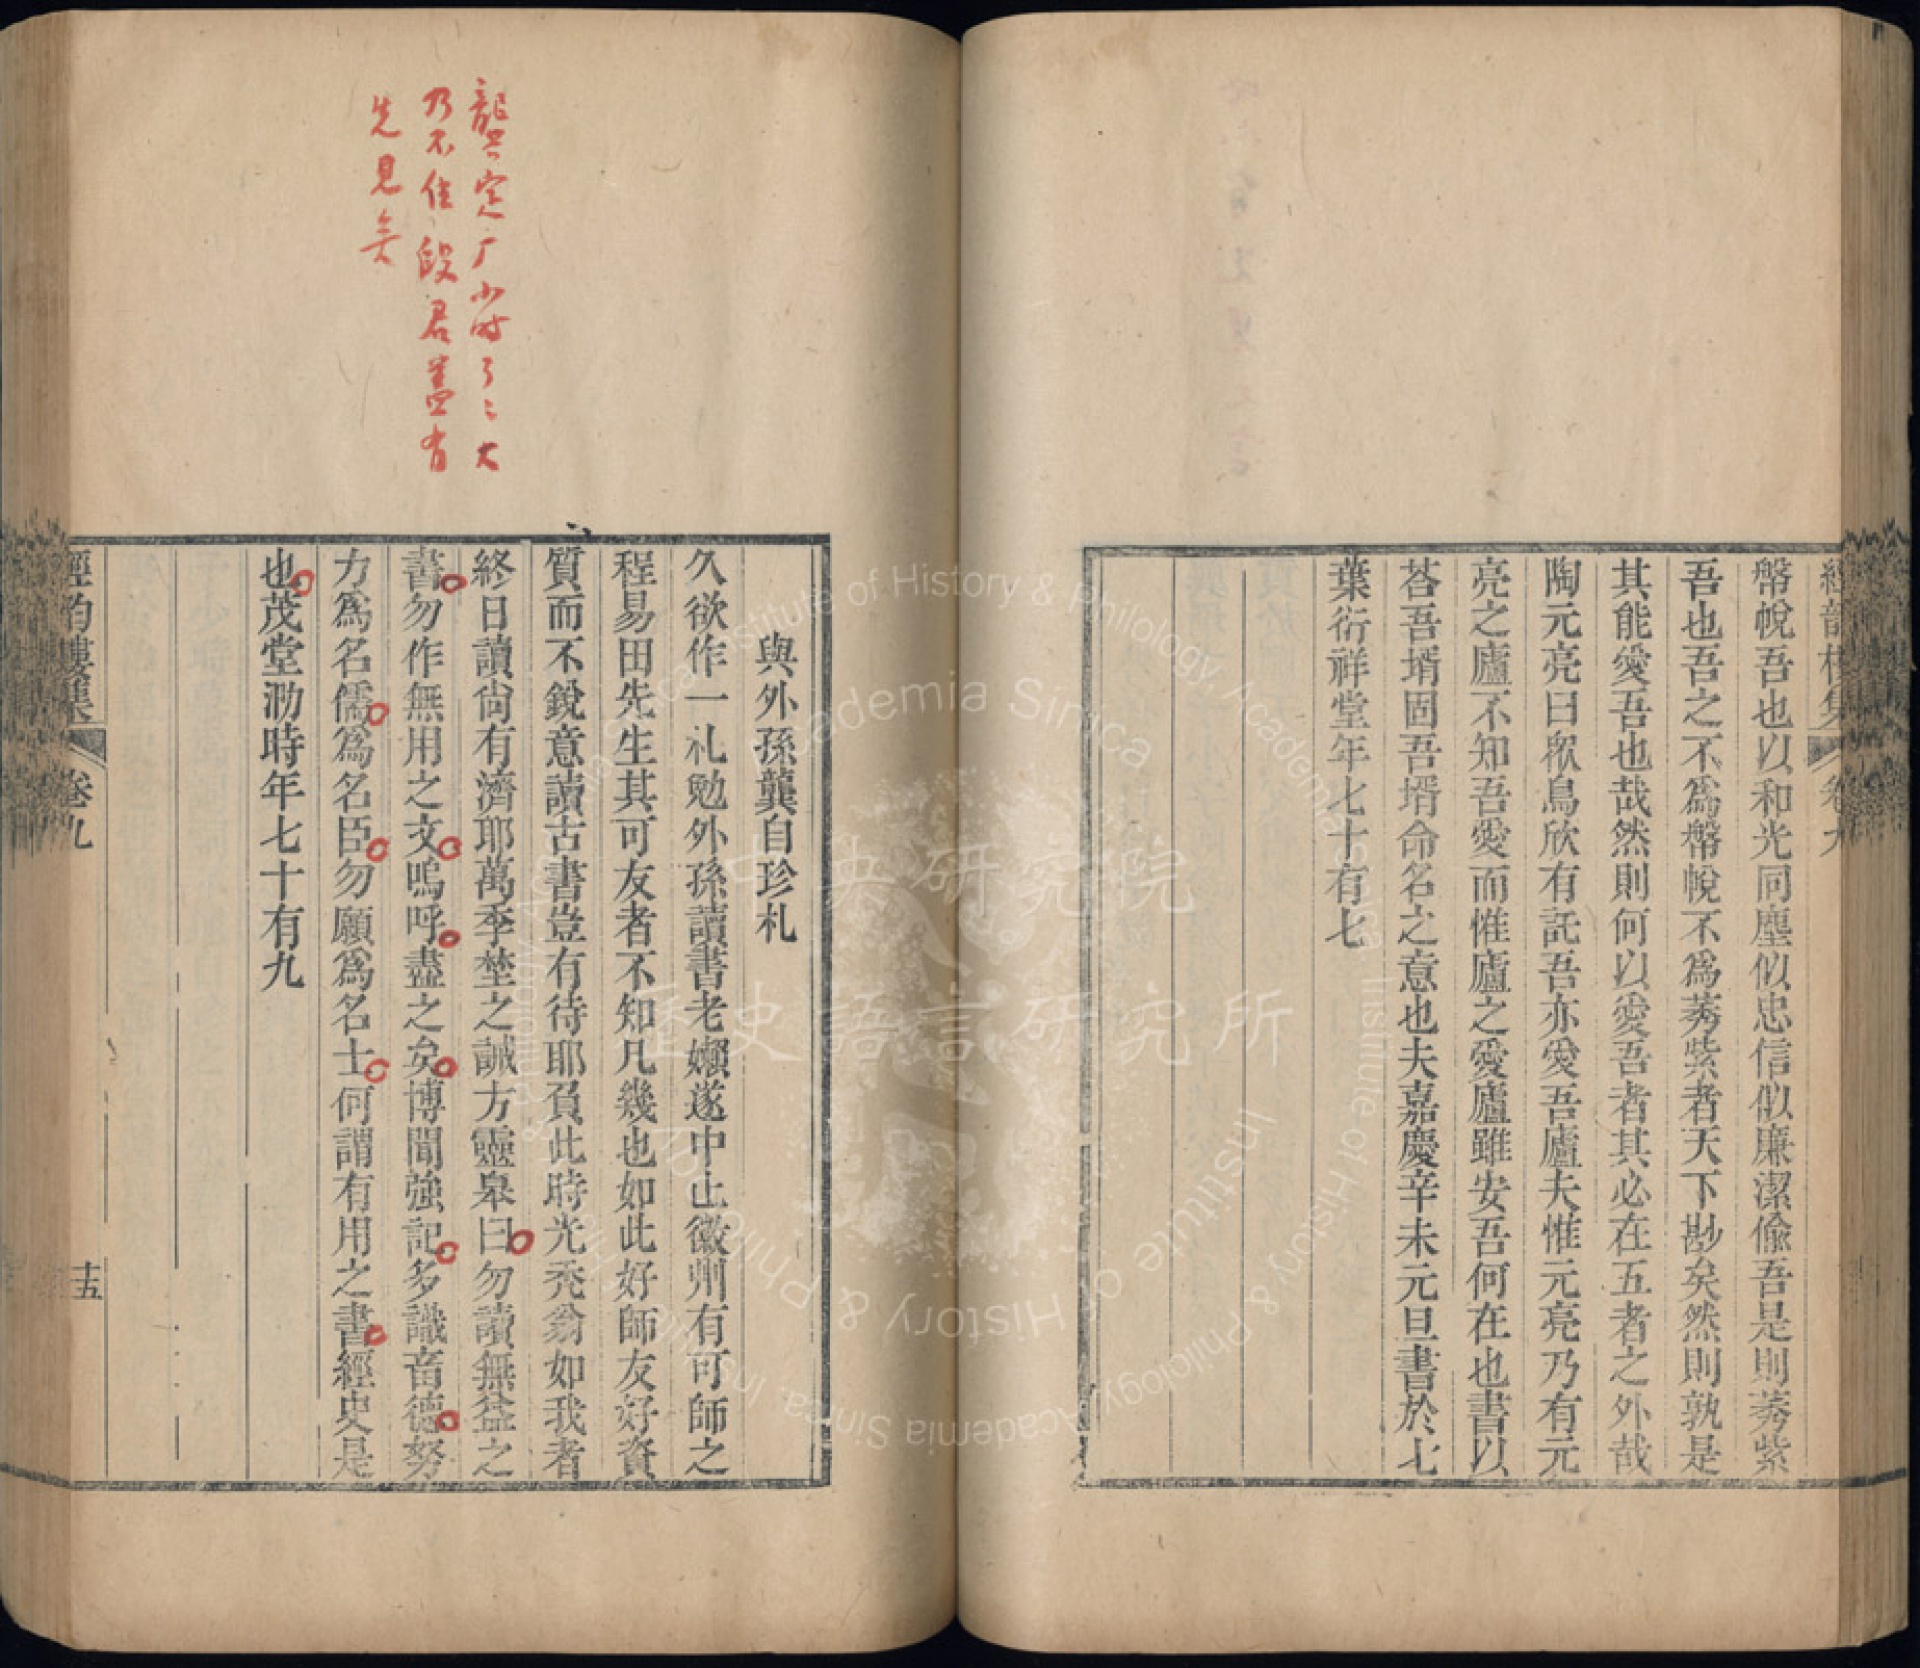 經韵樓集
卷九
槃帨吾也以和光同塵似忠信似廉潔偸吾是則莠紫
吾也吾之不爲槃帨不爲莠紫者天下尠矣然則孰是
其能愛吾也哉然則何以愛吾者其必在五者之外哉
陶元亮曰衆鳥欣有託吾亦愛吾廬夫惟元亮乃有元
亮之廬不知吾愛而惟廬之愛廬雖安吾何在也書以
荅吾壻固吾壻命名之意也夫嘉慶辛未元旦書於七
葉衍祥堂年七十有七
龔定厂小時了〻大
乃不佳段君蓋有
先見矣
與外孫龔自珍札
久欲作一札勉外孫讀書老嬾遂中止徽州有可師之
程易田先生其可友者不知凡幾也如此好師友好資
質而不銳意讀古書豈有待耶負此時光禿翁如我者
終日讀尙有濟耶萬季埜之誡方靈皋曰勿讀無益之
書勿作無用之文嗚呼盡之矣博聞強記多識畜德努
力爲名儒爲名臣勿願爲名士何謂有用之書經史是
也茂堂泐時年七十有九
經韵樓集
卷九
十五
中央研究院
歷史語言研究所
Institute of History & Philology, Academia Sinica